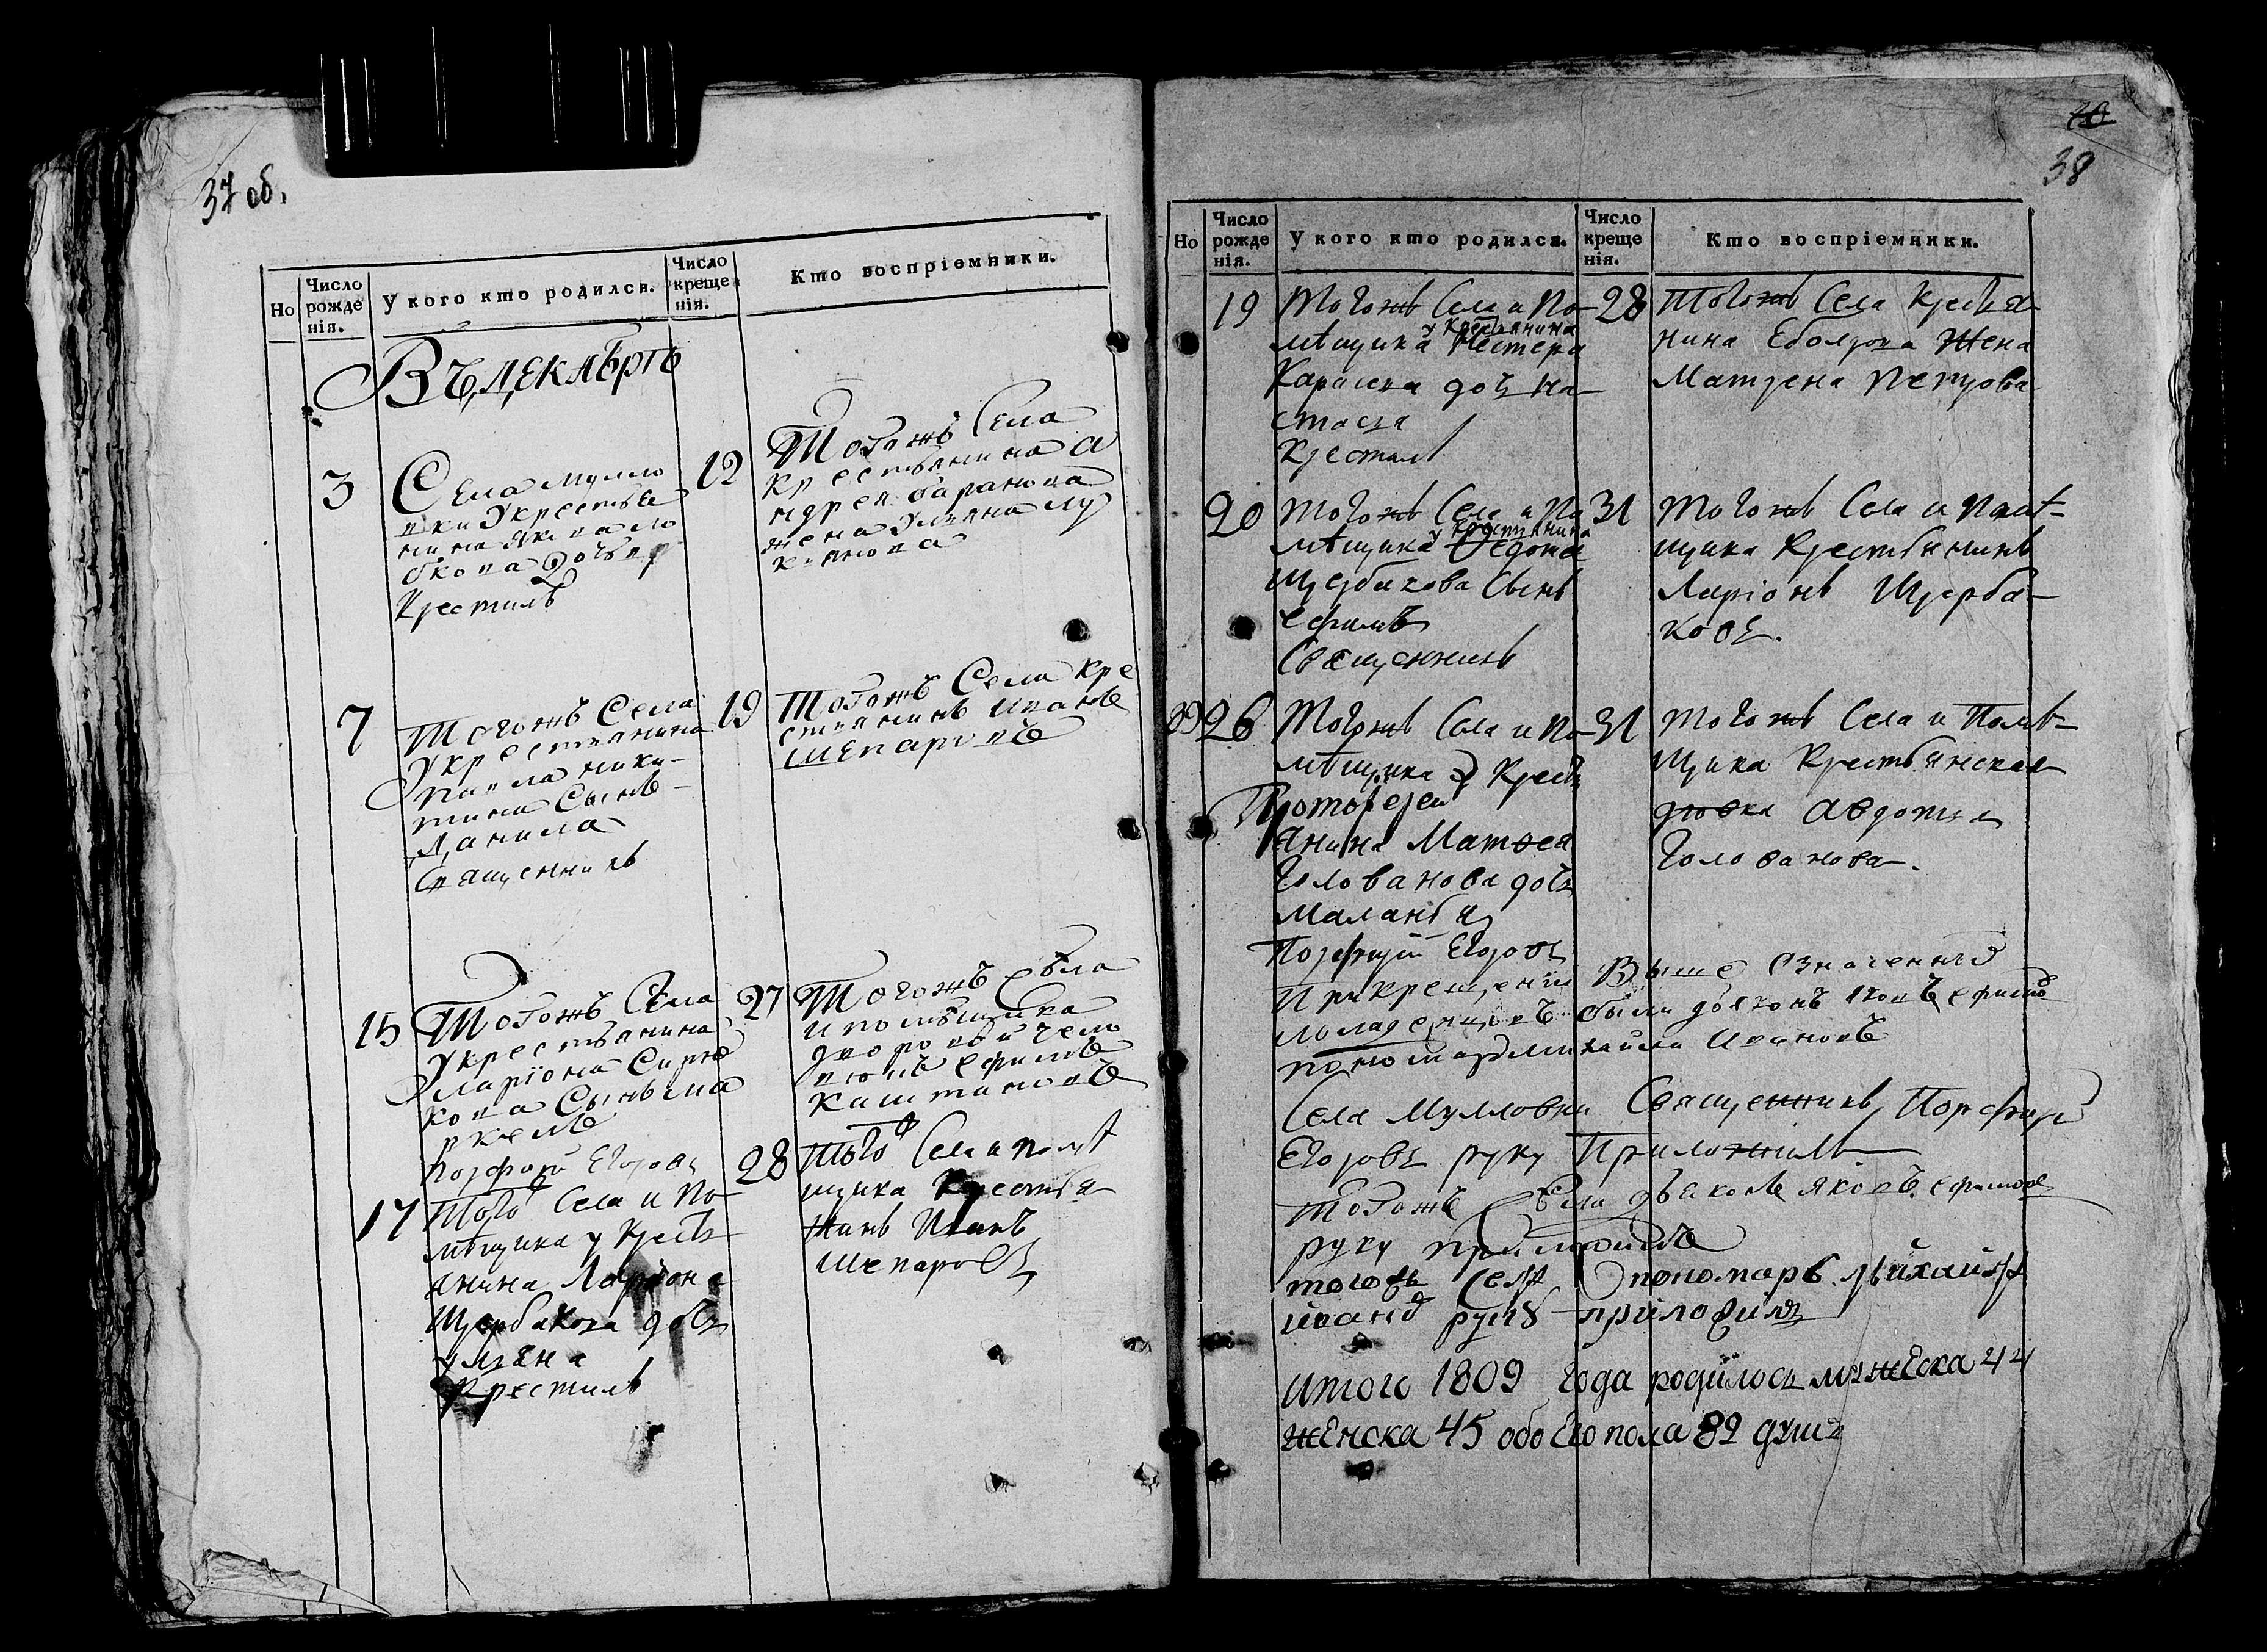 37 об.
Но
Число рожденія.
У кого кто родился.
Число крещенія.
Кто воспріемники.
Въ декабрѣ
3
Села Мулло
вки У крестья
нина
Дочь
Крестилъ
12
Тогожъ Села
крестьянина А
ндрея Баранова
жена Ульяна Лу
кянова
7
Тогожъ Села
У крестянина
Павла Ники-
тина Сынъ
Данила
Священникъ
19
Тогожъ Села кре
стянинъ Иванъ
Шепаровъ
15
Тогожъ Села
У крестьянина
Лариона
кова Сынъ Ма
ркелъ
Порфирй Егоровъ
27
Тогожъ села
и помѣщика
дворовй чело
вѣкъ Ефимъ
Каштановъ
17
Того Села и По-
мѣщика у Кресть
янина Лариона
Щербакова дочь
ульяна
Крестилъ
28
Того Села и помѣ
щика Крестья
нинъ Иванъ
Шепаровъ
38
Но
Число рожденія.
У кого кто родился.
Число крещенія.
Кто воспріемники.
19
Тогожъ Села и По-
у Крестьянина
мѣщика Нестера
Карпова дочь На-
стасья
Крестилъ
28
Тогожъ Села Крестья
нина жена
Матрена Петрова
20
Тогожъ Села и По
у Крестьянина
мѣщика Федота
Щербакова Сынъ
Ефимъ
Священникъ
31
Тогожъ Села и Помѣ-
щика Крестьянинъ
Ларіонъ Щерба-
ковъ.
26
Тогожъ Села и По-
мѣщика У Кресть
Протоіерей
янина Матвея
Голованова дочь
Маланья
Порфирий Егоровъ
31
Тогожъ Села и Помѣ-
щика Крестьянская
девка Авдотья
Голованова.
При крещении Выше Означенныхъ
младенцовъ были дьяконъ Яковъ Ефимовъ
пономарь Михайла Ивановъ
Села Мулловки Священникъ Порфирий
Егоровъ руку Приложилъ
Тогожъ Села дьяконъ Яковъ Ефимовъ
руку приложилъ
тогожъ села пономарь михайла
иванов руку приложилъ
Итого 1809 Года родилось мужеска 44
Женска 45 обоего пола 89 душъ